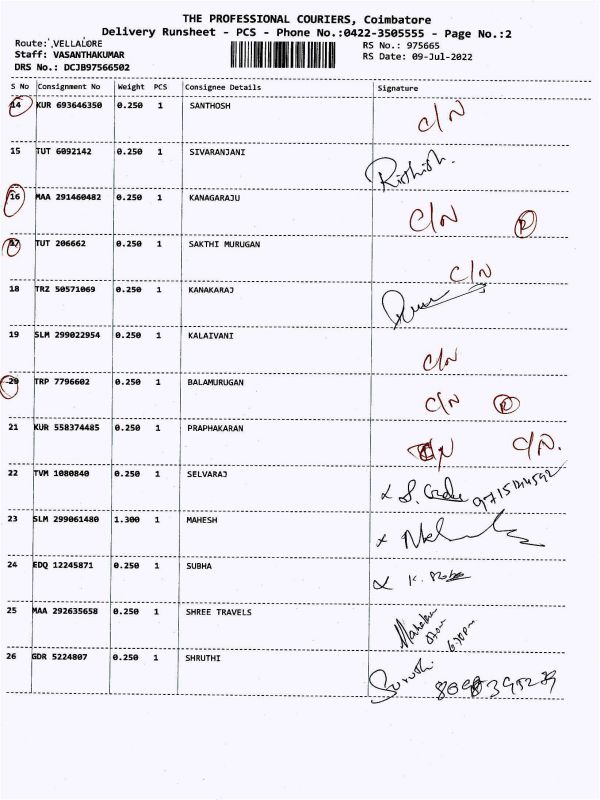 THE PROFESSIONAL COURIERS, Coimbatore
Delivery Runsheet - PCS - Phone No.:0422-3505555 - Page No.:2
Route: VELLALORE
RS No.: 975665
Staff: VASANTHAKUMAR
RS Date: 09-Jul-2022
DRS No.: DCJB97566502
S No Consignment No Weight PCS Consignee Details Signature
14 KUR 693646350 0.250 1 SANTHOSH C/N
15 TUT 6092142 0.250 1 SIVARANJANI Rithish.
16 MAA 291460482 0.250 1 KANAGARAJU C/N R
17 TUT 206662 0.250 1 SAKTHI MURUGAN C/N
18 TRZ 50571069 0.250 1 KANAKARAJ
19 SLM 299022954 0.250 1 KALAIVANI C/N
20 TRP 7796602 0.250 1 BALAMURUGAN C/N R
21 KUR 558374485 0.250 1 PRAPHAKARAN C/N C/N.
22 TVM 1080840 0.250 1 SELVARAJ
23 SLM 299061480 1.300 1 MAHESH
24 EDQ 12245871 0.250 1 SUBHA
25 MAA 292635658 0.250 1 SHREE TRAVELS
26 GDR 5224807 0.250 1 SHRUTHI Suruthi.